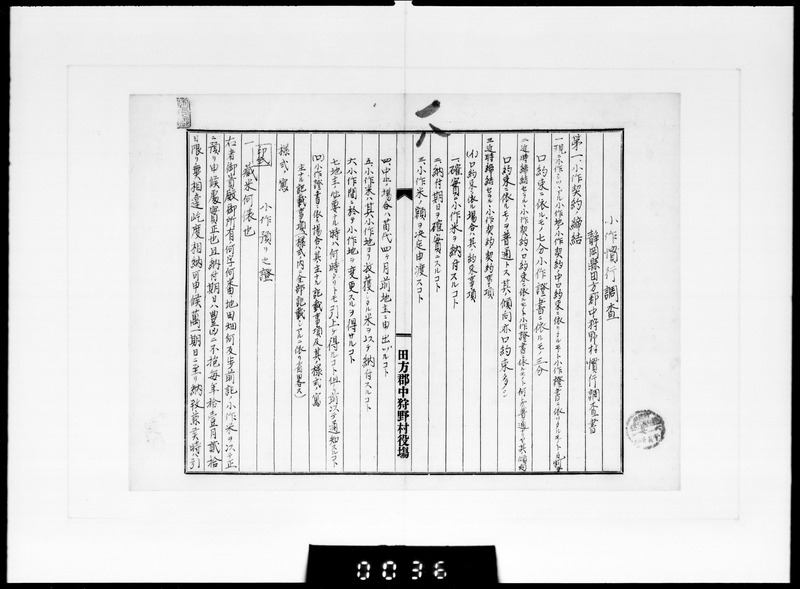 小作慣行調査
静岡縣田方郡中狩野村慣行調査書
第一 小作契約ノ締結
一 現ニ小作シツヽアル小作地ノ小作契約中口約束ニ依リタルモノト小作證書ニ依リタルモノトノ
口約束ニ依ルモノ七分小作證書ニ依ルモノ三分
二 近時締結セラルヽ小作契約ハ口約束ニ依ルモノト小作證書ニ依ルモノト何レカ普通ナリヤ其傾向
口約束ニ依ルモノヲ普通トス其傾向亦口約束多シ
三 近時締結セラルヽ小作契約ノ契約事項
(イ)口約束ニ依ル場合ハ其ノ約束事項
一、確實ニ小作米ヲ納付スルコト
二、納付期日ヲ確實ニスルコト
三、小作米ノ額ヲ決定申渡スコト
田方郡中狩野村役場
四、中止ノ場合ハ苗代四ヶ月前地主ニ申出ヅルコト
五、小作米ハ其小作地ヨリ收穫シタル米ヲ以テ納付スルコト
六、小作間ニ於テ小作地ヲ変更スルヲ得サルコト
七、地主ノ必要ナル時ハ何時ナリトモ引上ケ得ルコト但シ前以テ通知スルコト
(ロ)小作證書ニ依ル場合ハ其主ナル記載事項及其ノ樣式ノ寫
主ナル記載事項(樣式内ニ全部記載シアルニ依リ省略ス)
樣式ノ寫
印紙 小作預リ之證
一、藏米何俵也
右者御貴殿御所有何字何番地田畑何反歩前記ノ小作米ヲ以テ正
ニ預リ申候處實正也且納付期日ハ豊凶ニ不拘毎年拾壹月貳拾
日限リ無相違屹度相納可申候萬一期日ニ至リ納致兼候時ハ引
0036